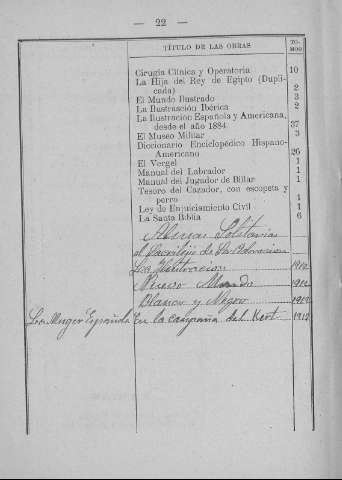 — 22 —
TÍTULO DE LAS OBRAS TO- MOS
Cirugía Clínica y Operatoria 10
La Hija del Rey de Egipto (Dupli-
cada) 2
El Mundo Ilustrado 3
La Ilustración Ibérica 2
La Ilustración Española y Americana,
desde el año 1884 37
El Museo Militar 3
Diccionario Enciclopédico Hispano-
Americano 26
El Vergel 1
Manual del Labrador 1
Manual del Jugador de Billar 1
Tesoro del Cazador, con escopeta y
perro 1
Ley de Enjuiciamiento Civil 1
La Santa Biblia 6
Solitaria
el Sacrilejio de
La 1912
Nuevo Mundo 1912
Blanco y Negro 1912
La Muger Española En la campaña del Kert 1912